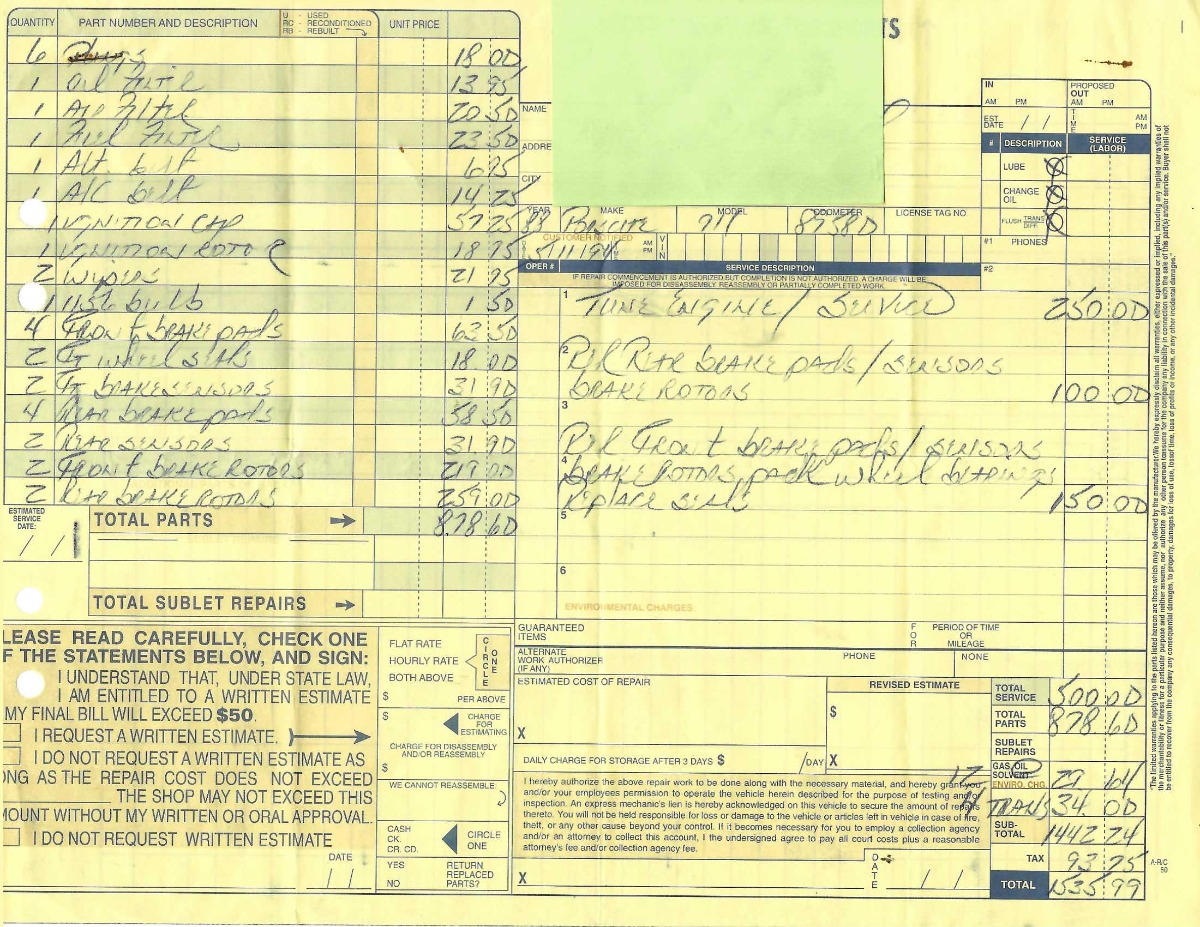 QUANTITY PART NUMBER AND DESCRIPTION U - USED RC - RECONDITIONED RB - REBUILT UNIT PRICE
6 Plugs 18 00
1 Oil Filter 13 95
1 Air Filter 20 50
1 Fuel Filter 23 50
1 Alt. belt 6 95
1 A/C belt 14 25
1 IGNITION CAP 57 25
1 IGNITION ROTOR 18 95
2 Wipers 21 95
1 bulb 50
4 Front BRAKE pads 63 50
2 Ft wheel seals 18 00
2 Ft BRAKE SENSORS 31 90
4 REAR brake pads 58 50
2 REAR SENSORS 31 90
2 FRONT BRAKE ROTORS 219 00
2 REAR BRAKE ROTORS 259 00
ESTIMATED SERVICE DATE: / /
TOTAL PARTS 878 60
TOTAL SUBLET REPAIRS
LEASE READ CAREFULLY, CHECK ONE
F THE STATEMENTS BELOW, AND SIGN:
I UNDERSTAND THAT, UNDER STATE LAW,
I AM ENTITLED TO A WRITTEN ESTIMATE
MY FINAL BILL WILL EXCEED $50.
I REQUEST A WRITTEN ESTIMATE.
I DO NOT REQUEST A WRITTEN ESTIMATE AS
NG AS THE REPAIR COST DOES NOT EXCEED
THE SHOP MAY NOT EXCEED THIS
MOUNT WITHOUT MY WRITTEN OR ORAL APPROVAL.
I DO NOT REQUEST WRITTEN ESTIMATE
DATE
/ /
FLAT RATE
HOURLY RATE
BOTH ABOVE
CIRCLE ONE
$ PER ABOVE
$ CHARGE FOR ESTIMATING
CHARGE FOR DISASSEMBLY AND/OR REASSEMBLY
$
WE CANNOT REASSEMBLE
CASH
CK.
CR. CD.
CIRCLE ONE
YES
NO
RETURN REPLACED PARTS?
TS
NAME
ADDRE
CITY
YEAR MAKE MODEL ODOMETER LICENSE TAG NO
88 Porsche 911 87580
CUSTOMER NOTIFIED AM PM VIN
5/11/94
OPER # SERVICE DESCRIPTION
IF REPAIR COMMENCEMENT IS AUTHORIZED BUT COMPLETION IS NOT AUTHORIZED, A CHARGE WILL BE
IMPOSED FOR DISASSEMBLY, REASSEMBLY OR PARTIALLY COMPLETED WORK.
1 TUNE ENGINE / SERVICE 250 00
2 Rpl REAR brake pads / SENSORS
BRAKE ROTORS 100 00
3
Rpl Front brake pads / SENSORS
4 BRAKE ROTORS, pack wheel bearings
REPLACE SEALS 150 00
5
6
ENVIRONMENTAL CHARGES
IN
AM PM
PROPOSED OUT
AM PM
EST DATE / /
TIME
AM PM
# DESCRIPTION SERVICE (LABOR)
LUBE
CHANGE OIL
FLUSH TRANS DIFF.
#1 PHONES
#2
GUARANTEED ITEMS
FOR PERIOD OF TIME OR MILEAGE
ALTERNATE WORK AUTHORIZER (IF ANY)
PHONE NONE
ESTIMATED COST OF REPAIR
X
REVISED ESTIMATE
$
DAILY CHARGE FOR STORAGE AFTER 3 DAYS $ /DAY X
I hereby authorize the above repair work to be done along with the necessary material, and hereby grant you
and/or your employees permission to operate the vehicle herein described for the purpose of testing and/or
inspection. An express mechanic's lien is hereby acknowledged on this vehicle to secure the amount of repairs
thereto. You will not be held responsible for loss or damage to the vehicle or articles left in vehicle in case of fire,
theft, or any other cause beyond your control. If it becomes necessary for you to employ a collection agency
and/or an attorney to collect this account, I the undersigned agree to pay all court costs plus a reasonable
attorney's fee and/or collection agency fee.
X DATE / /
TOTAL SERVICE 500 00
TOTAL PARTS 878 60
SUBLET REPAIRS
12 GAS/OIL SOLVENT
ENVIRO. CHG. 29 64
4 TRANS 34 00
SUB-TOTAL 1442 24
TAX 93 75
TOTAL 1535 99
A-R/C